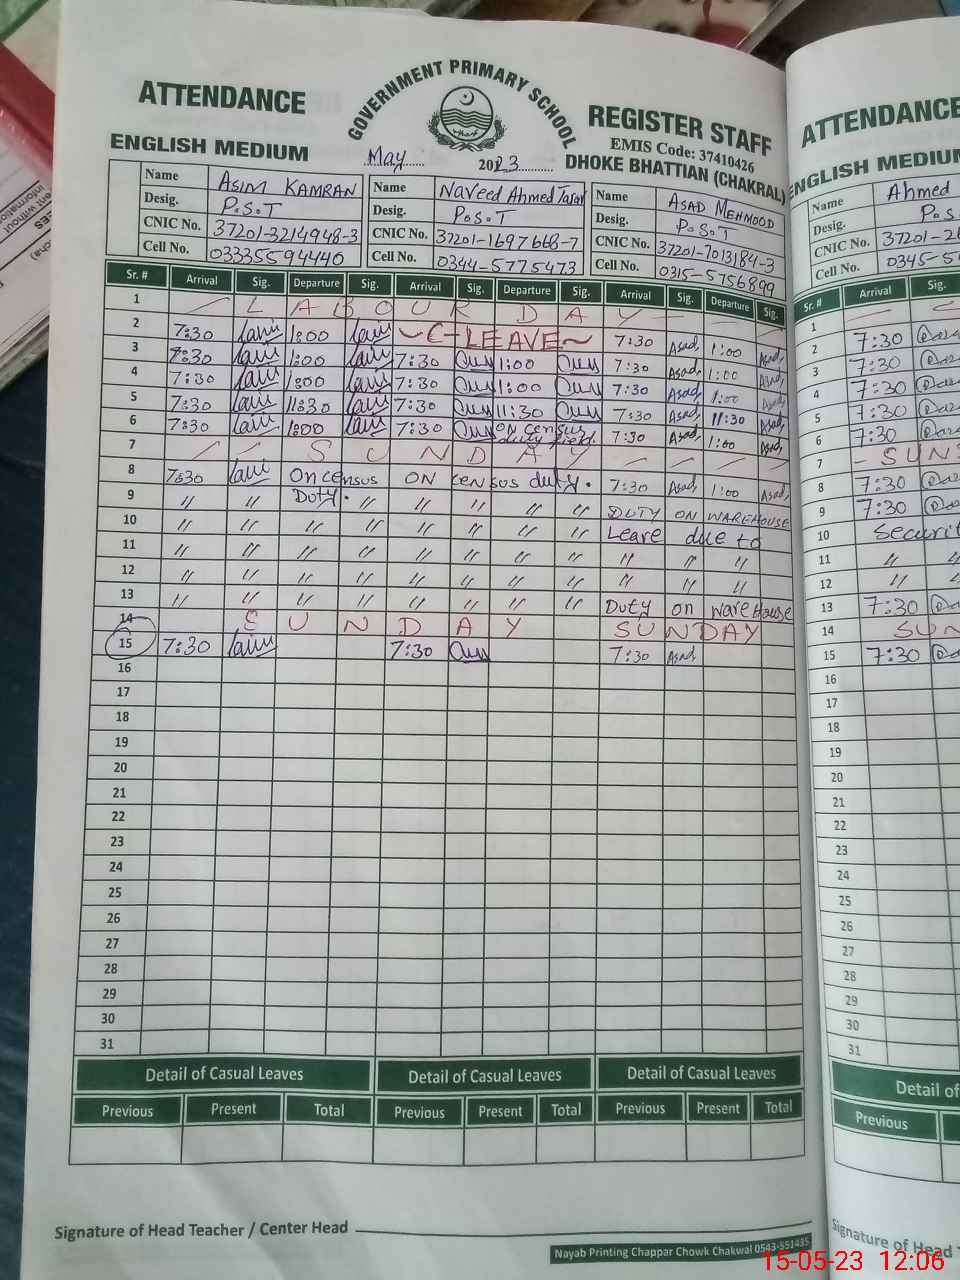 GOVERNMENT PRIMARY SCHOOL
ATTENDANCE REGISTER STAFF
EMIS Code: 37410426
ENGLISH MEDIUM May 2023 DHOKE BHATTIAN (CHAKRAL)
Name ASIM KAMRAN Name Naveed Ahmed Name ASAD MEHMOOD
Desig. P.S.T Desig. P.S.T Desig. P.S.T
CNIC No. 37201-3214948-3 CNIC No. 37201-1697668-7 CNIC No. 37201-7013184-3
Cell No. 03335594440 Cell No. 0344-5775473 Cell No. 0315-5756899
Sr. # Arrival Sig. Departure Sig. Arrival Sig. Departure Sig. Arrival Sig. Departure Sig.
1 LABOUR DAY
2 7:30 1:00 ~C-LEAVE~ 7:30 Asad 1:00 Asad
3 7:30 1:00 7:30 1:00 7:30 Asad 1:00 Asad
4 7:30 1:00 7:30 1:00 7:30 Asad 1:00 Asad
5 7:30 11:30 7:30 11:30 7:30 Asad 11:30 Asad
6 7:30 1:00 7:30 ON census duty field 7:30 Asad 1:00 Asad
7 SUNDAY
8 7:30 On census Duty. ON census duty. 7:30 Asad 1:00 Asad
9 " " " " " " " DUTY ON WAREHOUSE
10 " " " " " " " " Leave due to
11 " " " " " " " " " " "
12 " " " " " " " " " " "
13 " " " " " " " " Duty on wareHouse
14 SUNDAY SUNDAY
15 7:30 7:30 7:30 Asad
16
17
18
19
20
21
22
23
24
25
26
27
28
29
30
31
Detail of Casual Leaves Detail of Casual Leaves Detail of Casual Leaves
Previous Present Total Previous Present Total Previous Present Total
Signature of Head Teacher / Center Head
Nayab Printing Chappar Chowk Chakwal 0543-551435
ATTENDANCE
ENGLISH MEDIUM
Name Ahmed
Desig. P.S
CNIC No. 37201-26
Cell No. 0345-5
Sr. # Arrival Sig.
1
2 7:30
3 7:30
4 7:30
5 7:30
6 7:30
7 - SUN
8 7:30
9 7:30
10 Securit
11 " "
12 " "
13 7:30
14 SUN
15 7:30
16
17
18
19
20
21
22
23
24
25
26
27
28
29
30
31
Detail of
Previous
Signature of Head
15-05-23 12:06